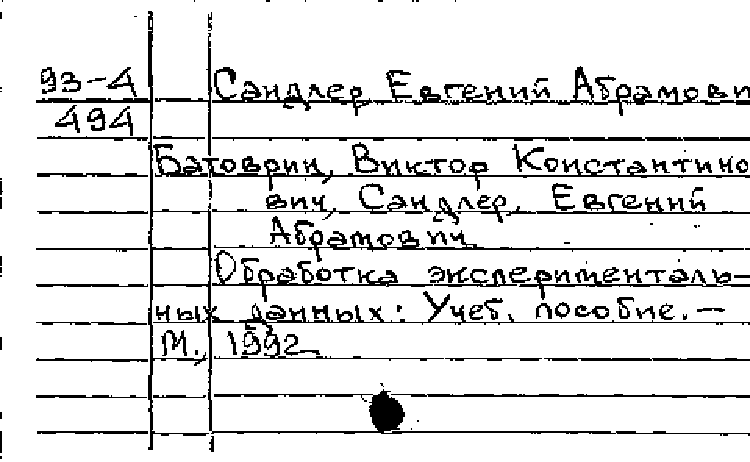 93-4 Сандлер Евгений Абрамови
494
Батоврин, Виктор Константино
вич, Сандлер, Евгений
Абрамович
Обработка эксперименталь-
ных данных: Учеб. пособие. —
М., 1992